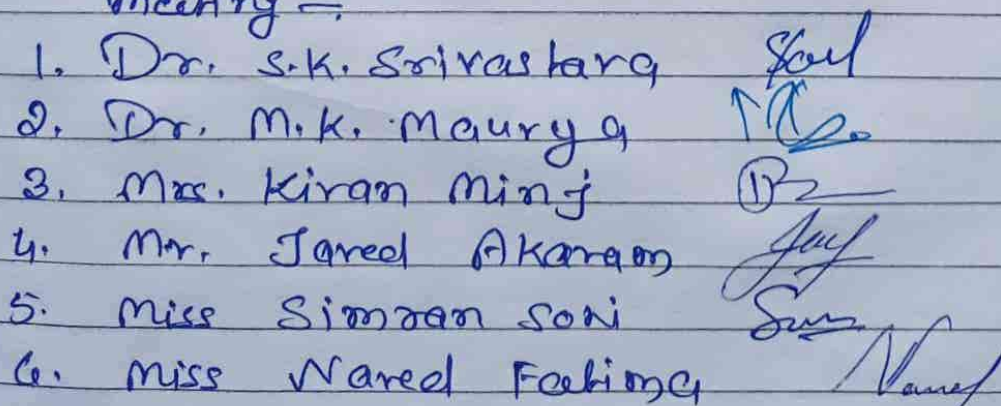 meeting -:
1. Dr. S.K. Srivastava
2. Dr. M.K. Maurya
3. Mrs. Kiran Minj
4. Mr. Javed Akaram
5. Miss Simran Soni
6. Miss Naved Fatima